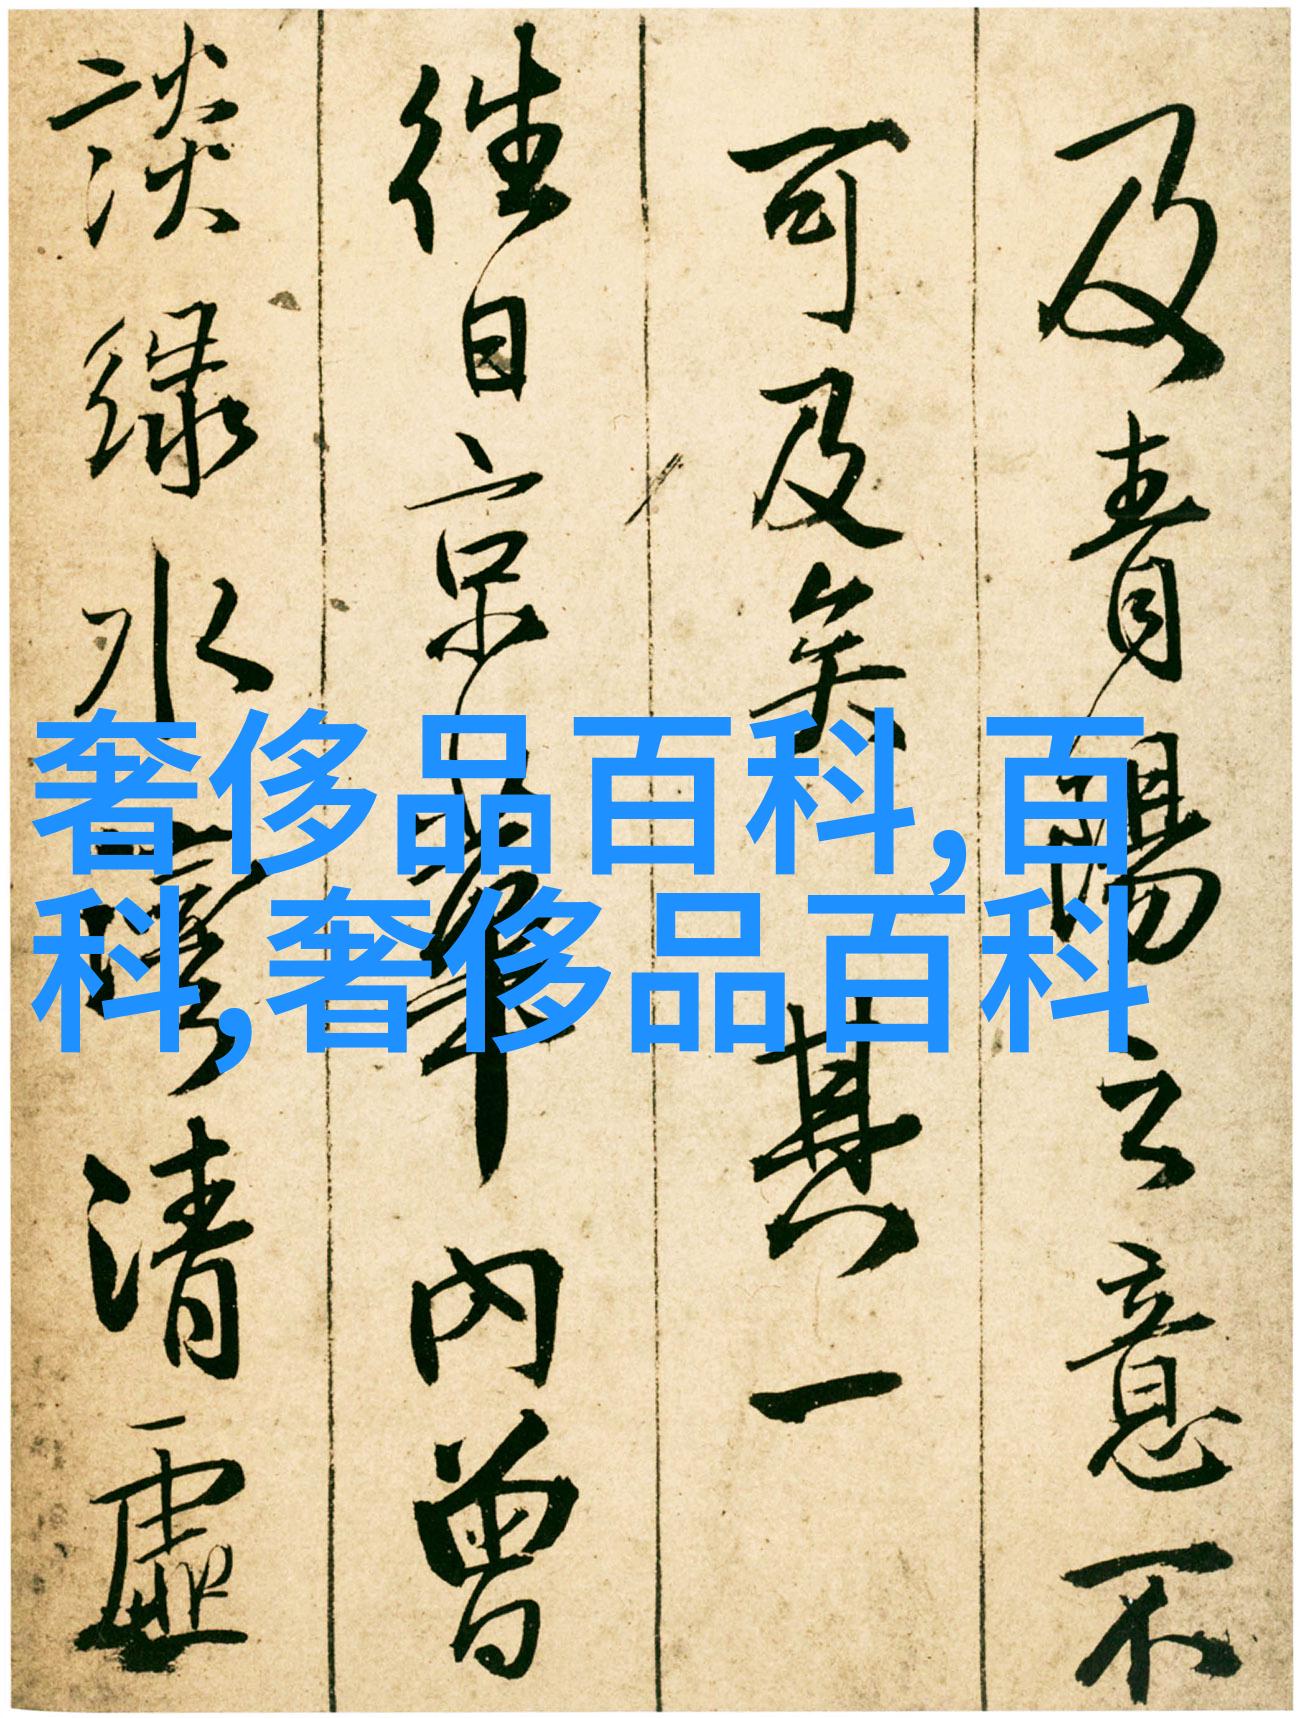 及青陽之意不
可及矣其一
往日京華内曾
談緑水灣清虛
奢侈品百科,百
科,奢侈品百科